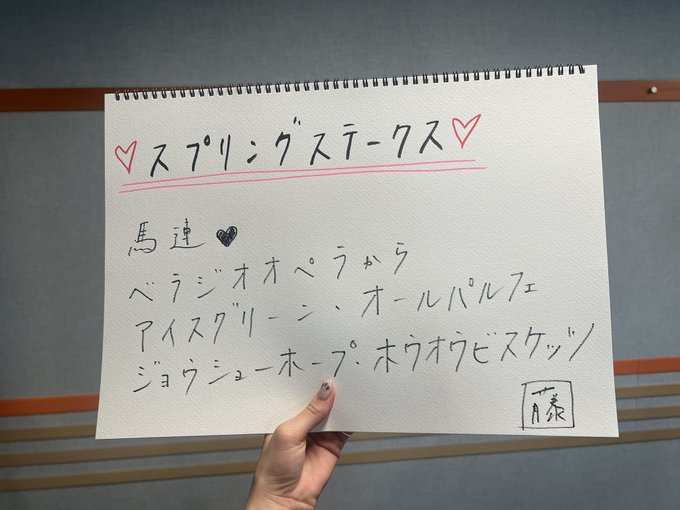 ♡スプリングステークス♡
馬連♥
ベラジオオペラから
アイスグリーン・オールパルフェ
ジョウショーホープ・ホウオウビスケッツ
藤